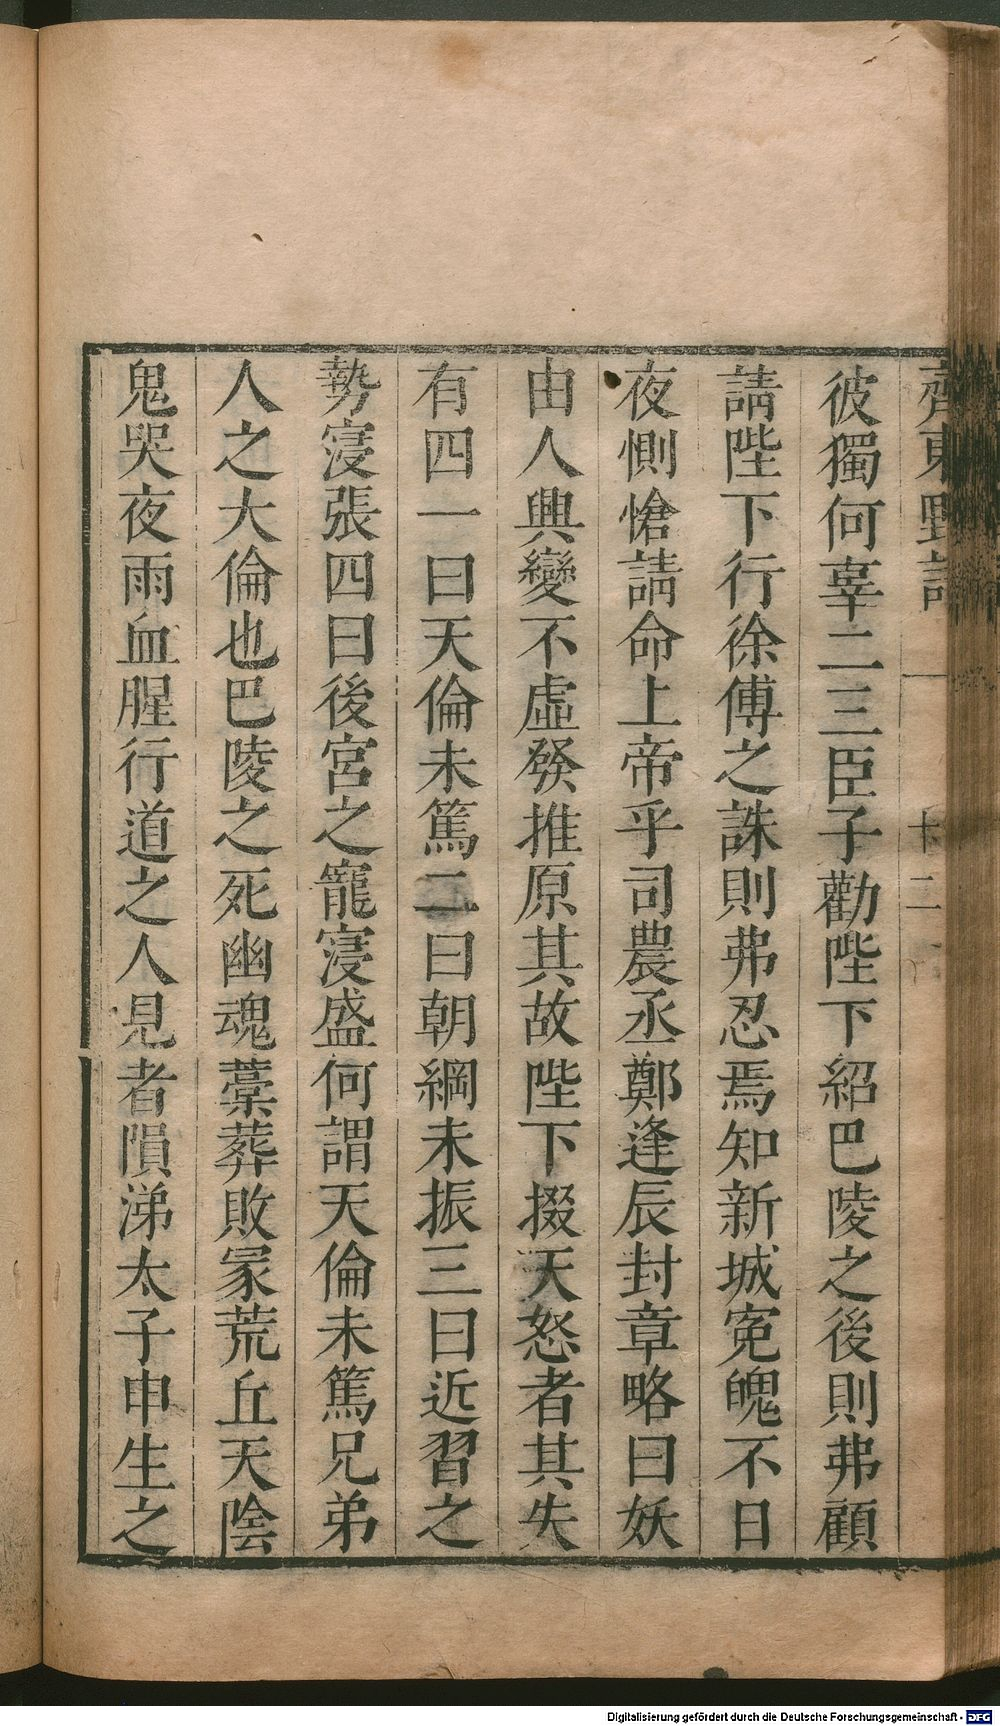 齊東野語 一 十二
彼獨何辜二三臣子勸陛下紹巴陵之後則弗顧
請陛下行徐傅之誅則弗忍焉知新城冤魄不日
夜惻愴請命上帝乎司農丞鄭逢辰封章略曰妖
由人興變不虛發推原其故陛下掇天怒者其失
有四一曰天倫未篤二曰朝綱未振三曰近習之
勢寖張四曰後宮之寵寖盛何謂天倫未篤兄弟
人之大倫也巴陵之死幽魂藁葬敗冢荒丘天陰
鬼哭夜雨血腥行道之人見者隕涕太子申生之
Digitalisierung gefördert durch die Deutsche Forschungsgemeinschaft - DFG